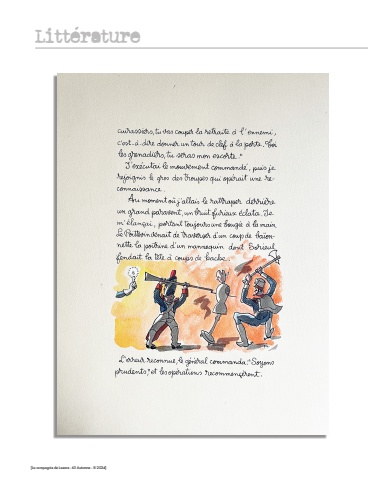 Littérature
cuirassiers, tu vas couper la retraite à l'ennemi,
c'est-à-dire donner un tour de clef à la porte. Toi
les grenadiers, tu seras mon escorte."
J'exécutai le mouvement commandé, puis je
rejoignis le gros des troupes qui opérait une re-
connaissance.
Au moment où j'allais le rattraper derrière
un grand paravent, un bruit furieux éclata. Je
m'élançai, portant toujours une bougie à la main.
Le Poittevin venait de traverser d'un coup de baïon-
nette la poitrine d'un mannequin dont Sorieul
fendait la tête à coups de hache.
L'erreur reconnue, le général commanda: "Soyons
prudents," et les opérations recommencèrent.